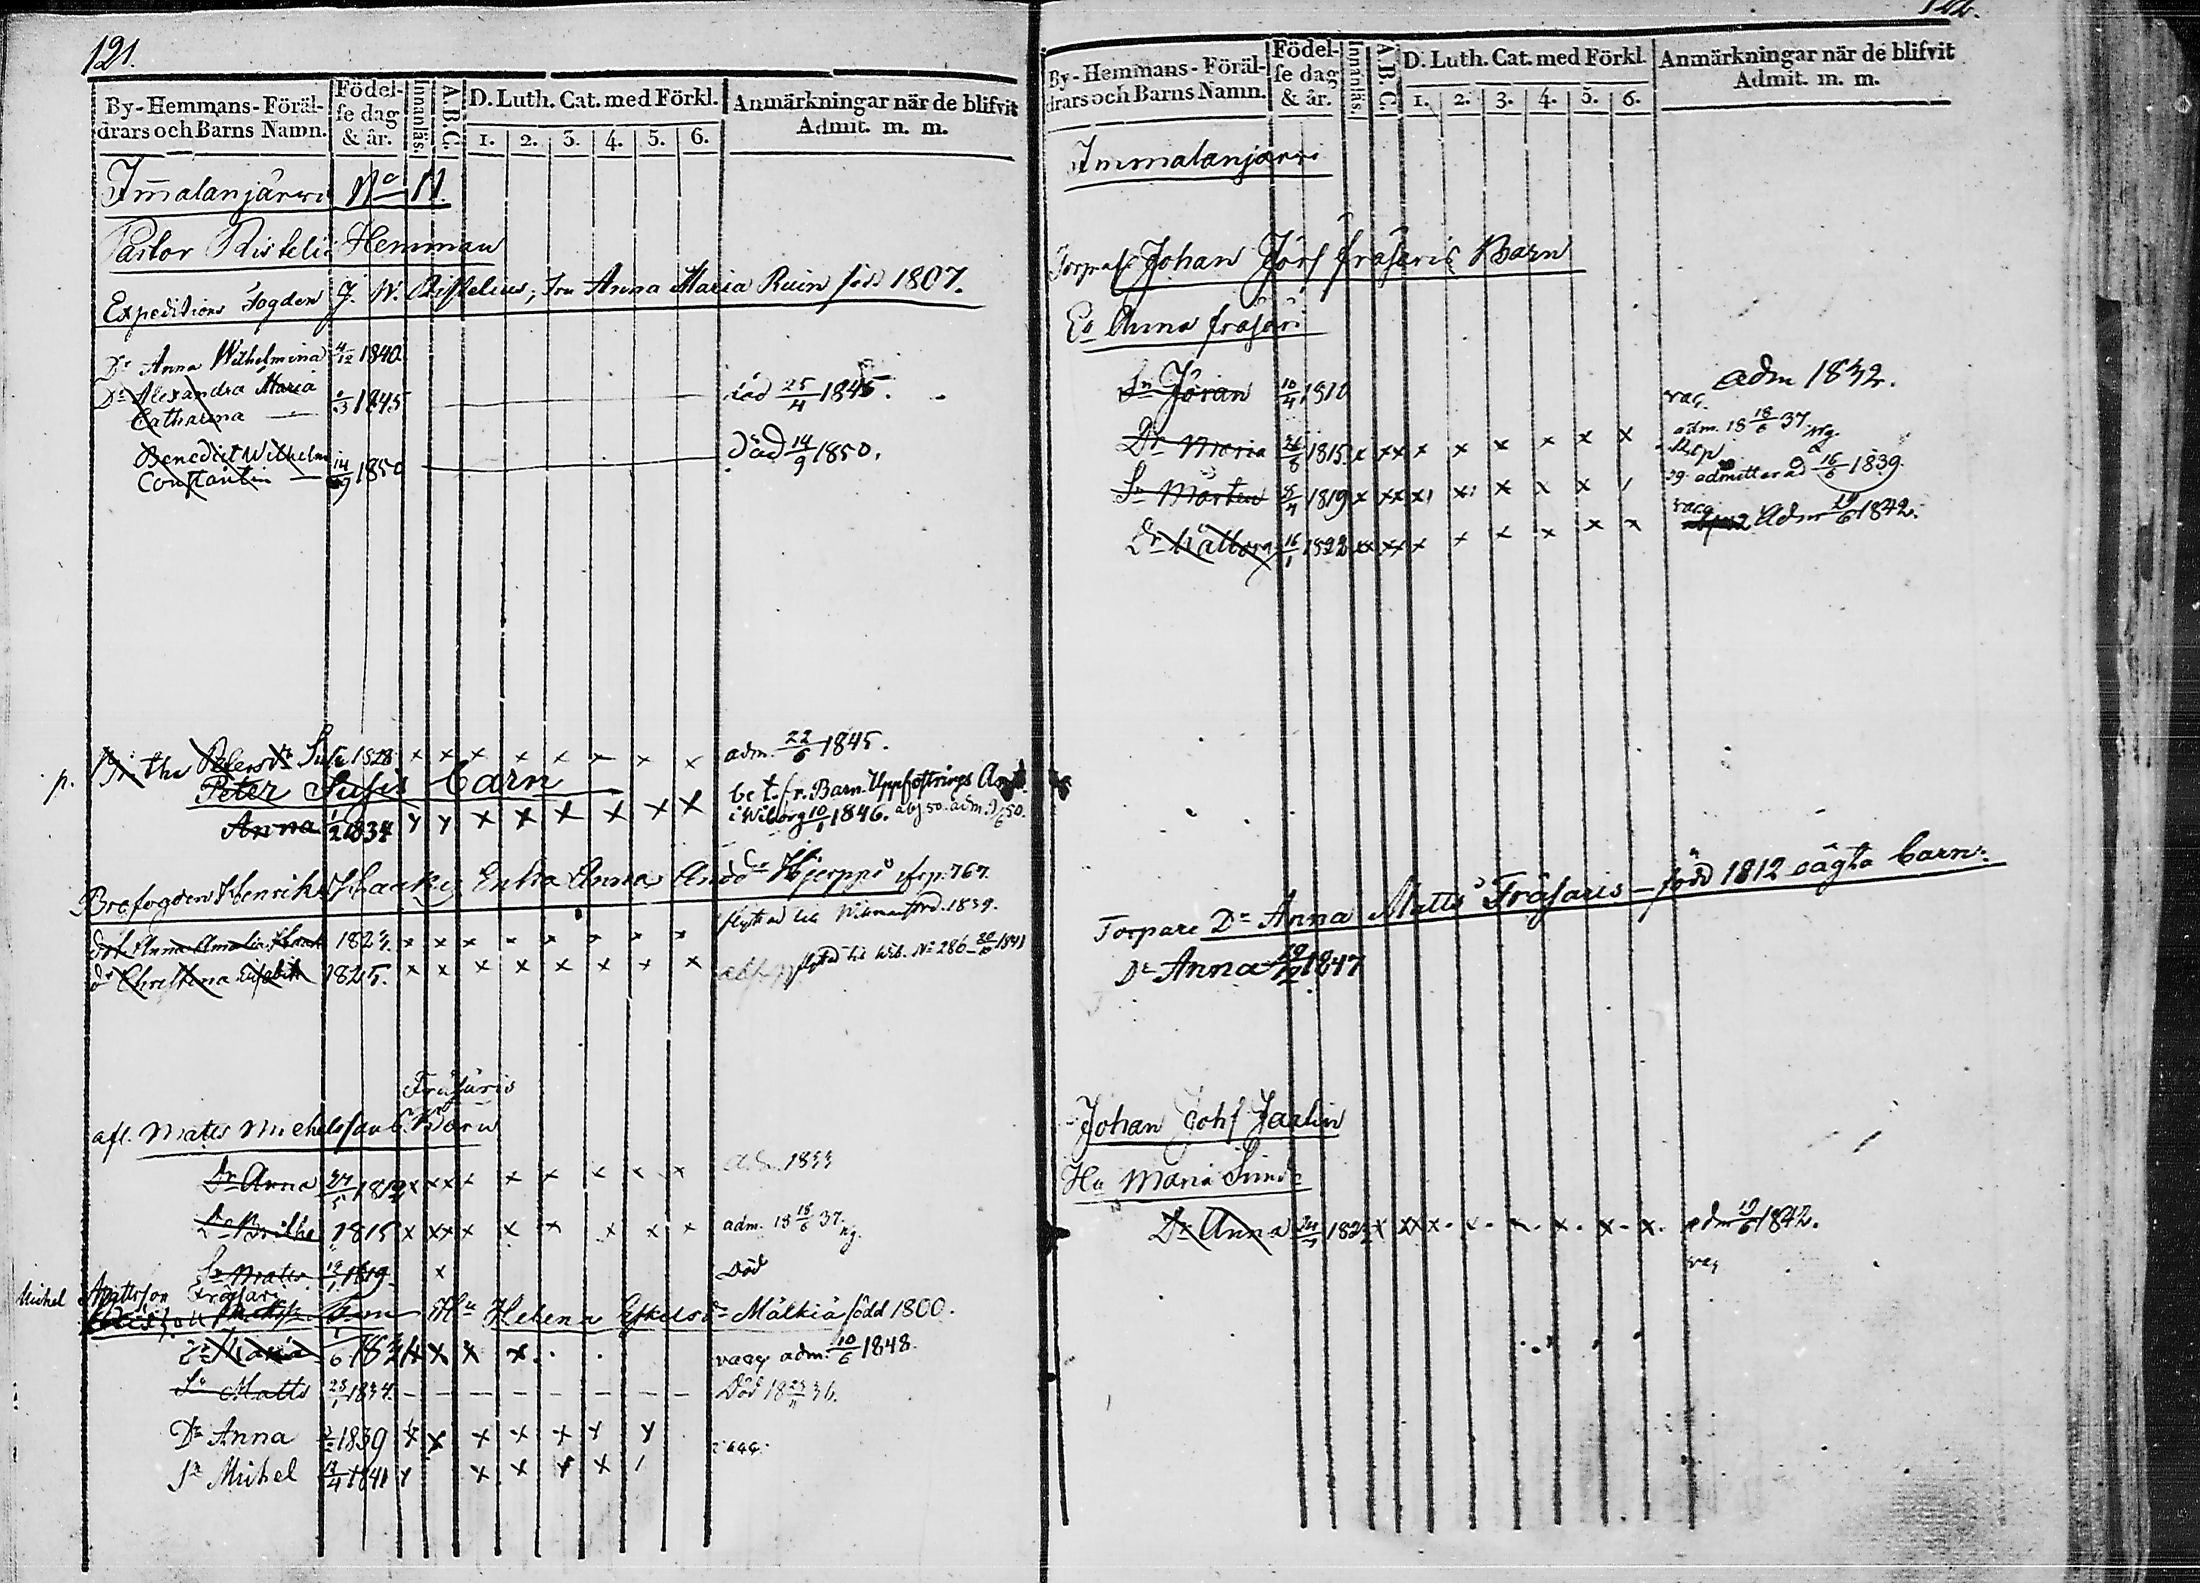 121.
By-Hemmans-Föräl-
drars och Barns Namn.
Födel-
se dag
& år.
Innanläs.
A.B.C.
D. Luth. Cat. med Förkl.
1. 2. 3. 4. 5. 6.
Anmärkningar när de blifvit
Admit. m. m.
Im̄alanjärvi No 11.
Pastor Ristelii Hemman
Expeditions Fogden J. W. Ristelius, Fru Anna Maria Ruin född 1807.
Dr Anna Wilhelmina 4/12 1840
Dr Alexandra Maria
Catharina — /3 1845 död 25/4 1845.
Benedict Wilhelm
Constantin — 14/9 1850 Död 14/9 1850.
p. Britha Petersdr Susi 1828 x x x x x x x x adm. 22/6 1845.
Peter Susis barn
bet. fr. Barn Uppfostrings
Anna 1/2 1834 x x x x x x x x i Wiborg 10/1 1846. abs 50. adm. 9/6 50.
Brofogden Henrik Enka Anna Andsdr Hjerppe p. 767.
dotr Anna Amalia 1823. x x x x x x x x flyttad till 1839.
dr Christina Elisabeth 1825. x x x x x x x x flyttad till Wib. No 286
Fräsäris
afl. Matts Michelsson Barn
Dr Anna 27/5 1812 x x x x x x x x x adm. 1833
Dr Britha 1815 x x x x x x x x x adm. 18 18/6 37.
Sn Matts 19/1 1819 x Död
Michel Mattsson Fräsäri
Barn Hu Helena Eskelsdr Mälkiä född 1800.
Dr Maria x x x x . . vacc adm. 10/6 1848.
Sn Matts 25/1 1834. — — — — — — — — Död 18 36.
Dr Anna 1839 x x x x x x x vacc.
Sn Michel /4 1841 x x x x x
122.
By-Hemmans-Föräl-
drars och Barns Namn.
Födel-
se dag
& år.
Innanläs.
A.B.C.
D. Luth. Cat. med Förkl.
1. 2. 3. 4. 5. 6.
Anmärkningar när de blifvit
Admit. m. m.
Immalanjärvi
Torpare Johan Jörs. Fräsäris Barn
Ea Anna Fräsäri
Sn Jöran 10/4 1810 adm 1832.
vac.
Dr Maria 26/8 1815 x x x x x x x x x adm. 18 18/6 37
Sn Mårten 1819 x x x x x x x x admitterad 16/6 1839.
vacc
Dr Wallborg 16/1 1822 x x x x x x x x x Adm 19/6 1842.
Torpare Dr Anna Matts Fräsaris — född 1812 oägta barn:
Dr Anna 1847
Johan Johs. Jaatin
Hu Maria Simsdr
Dr Anna 24/7 182 x x x x x x x x x adm 19/6 1842.
vac